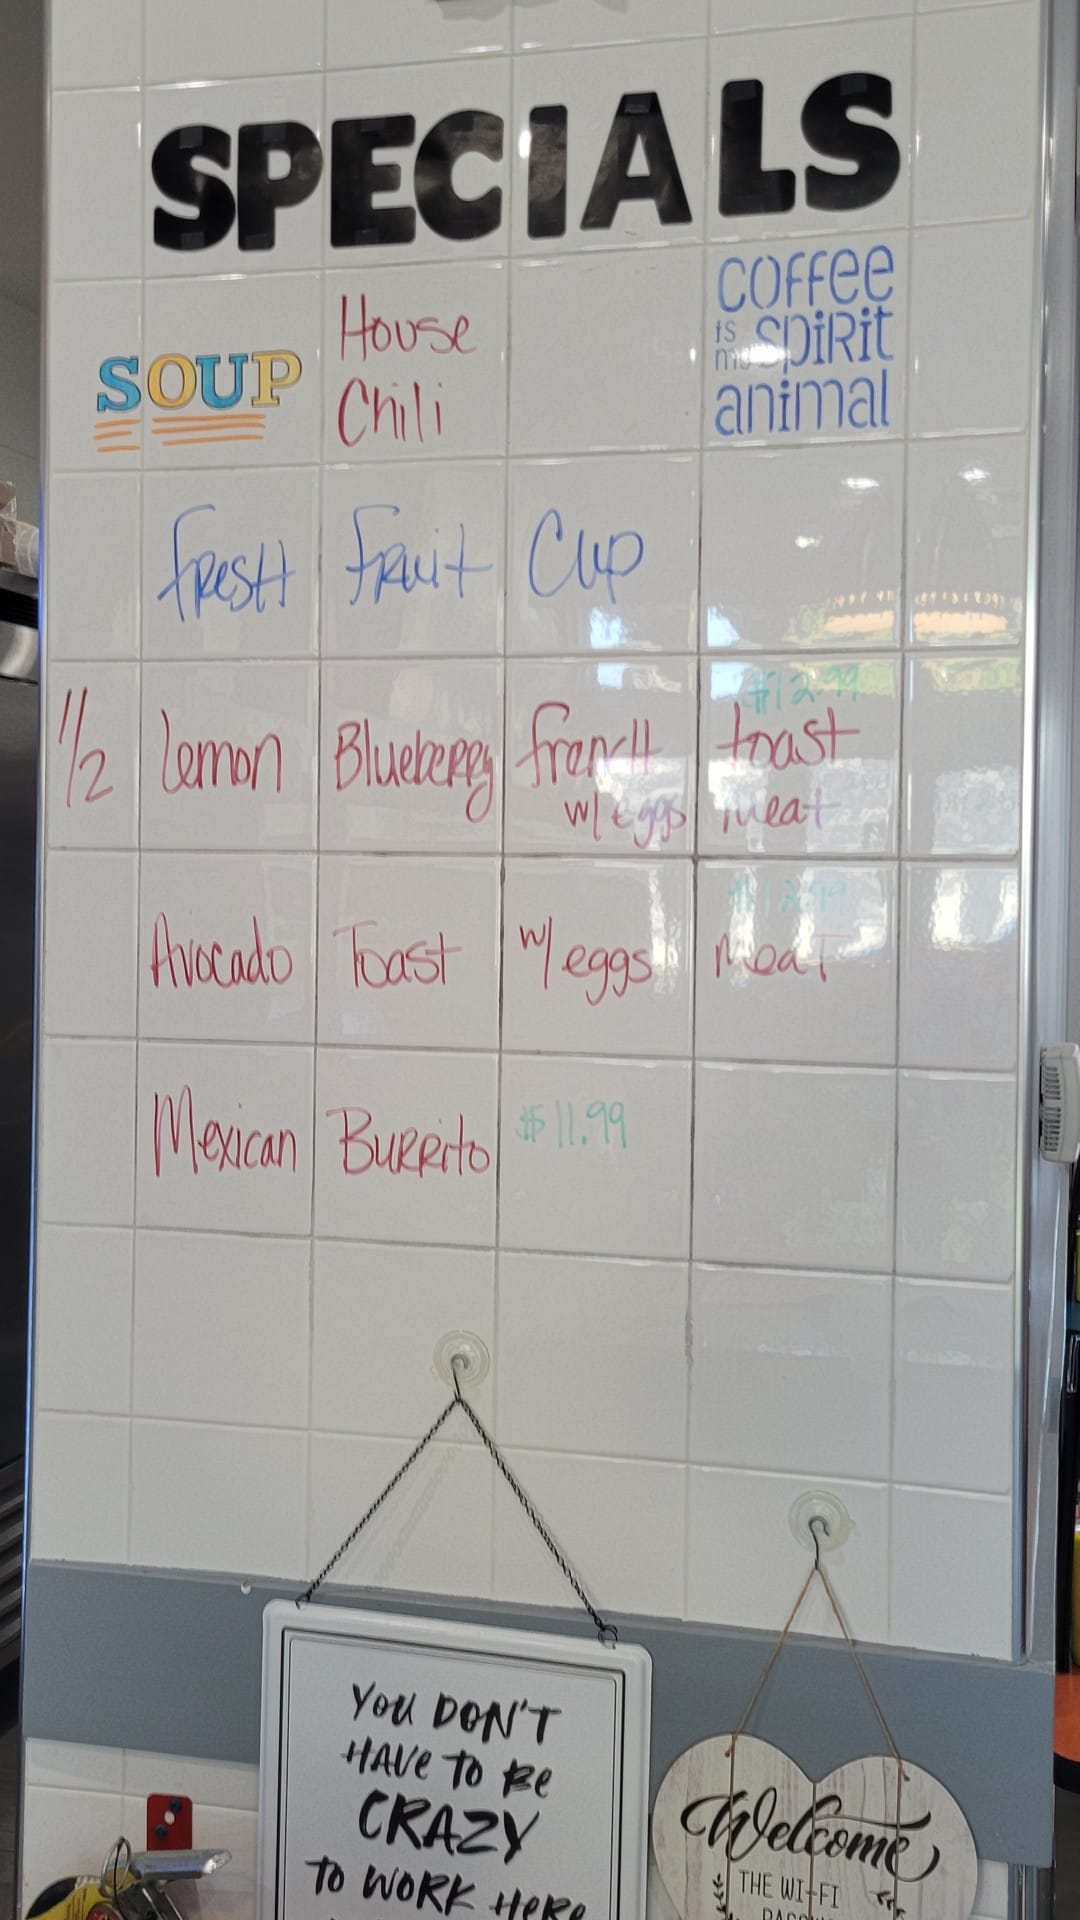 SPECIALS
SOUP
House
Chili
COFFEE
is
my SPIRIT
animal
FRESH FRUIT CUP
$12.99
1/2 Lemon Blueberry FRENCH toast
w/ eggs meat
$13.99
Avocado Toast w/ eggs MeaT
Mexican BURRITO $11.99
YOU DON'T
HAVE TO BE
CRAZY
TO WORK HERE
Welcome
THE WI-FI